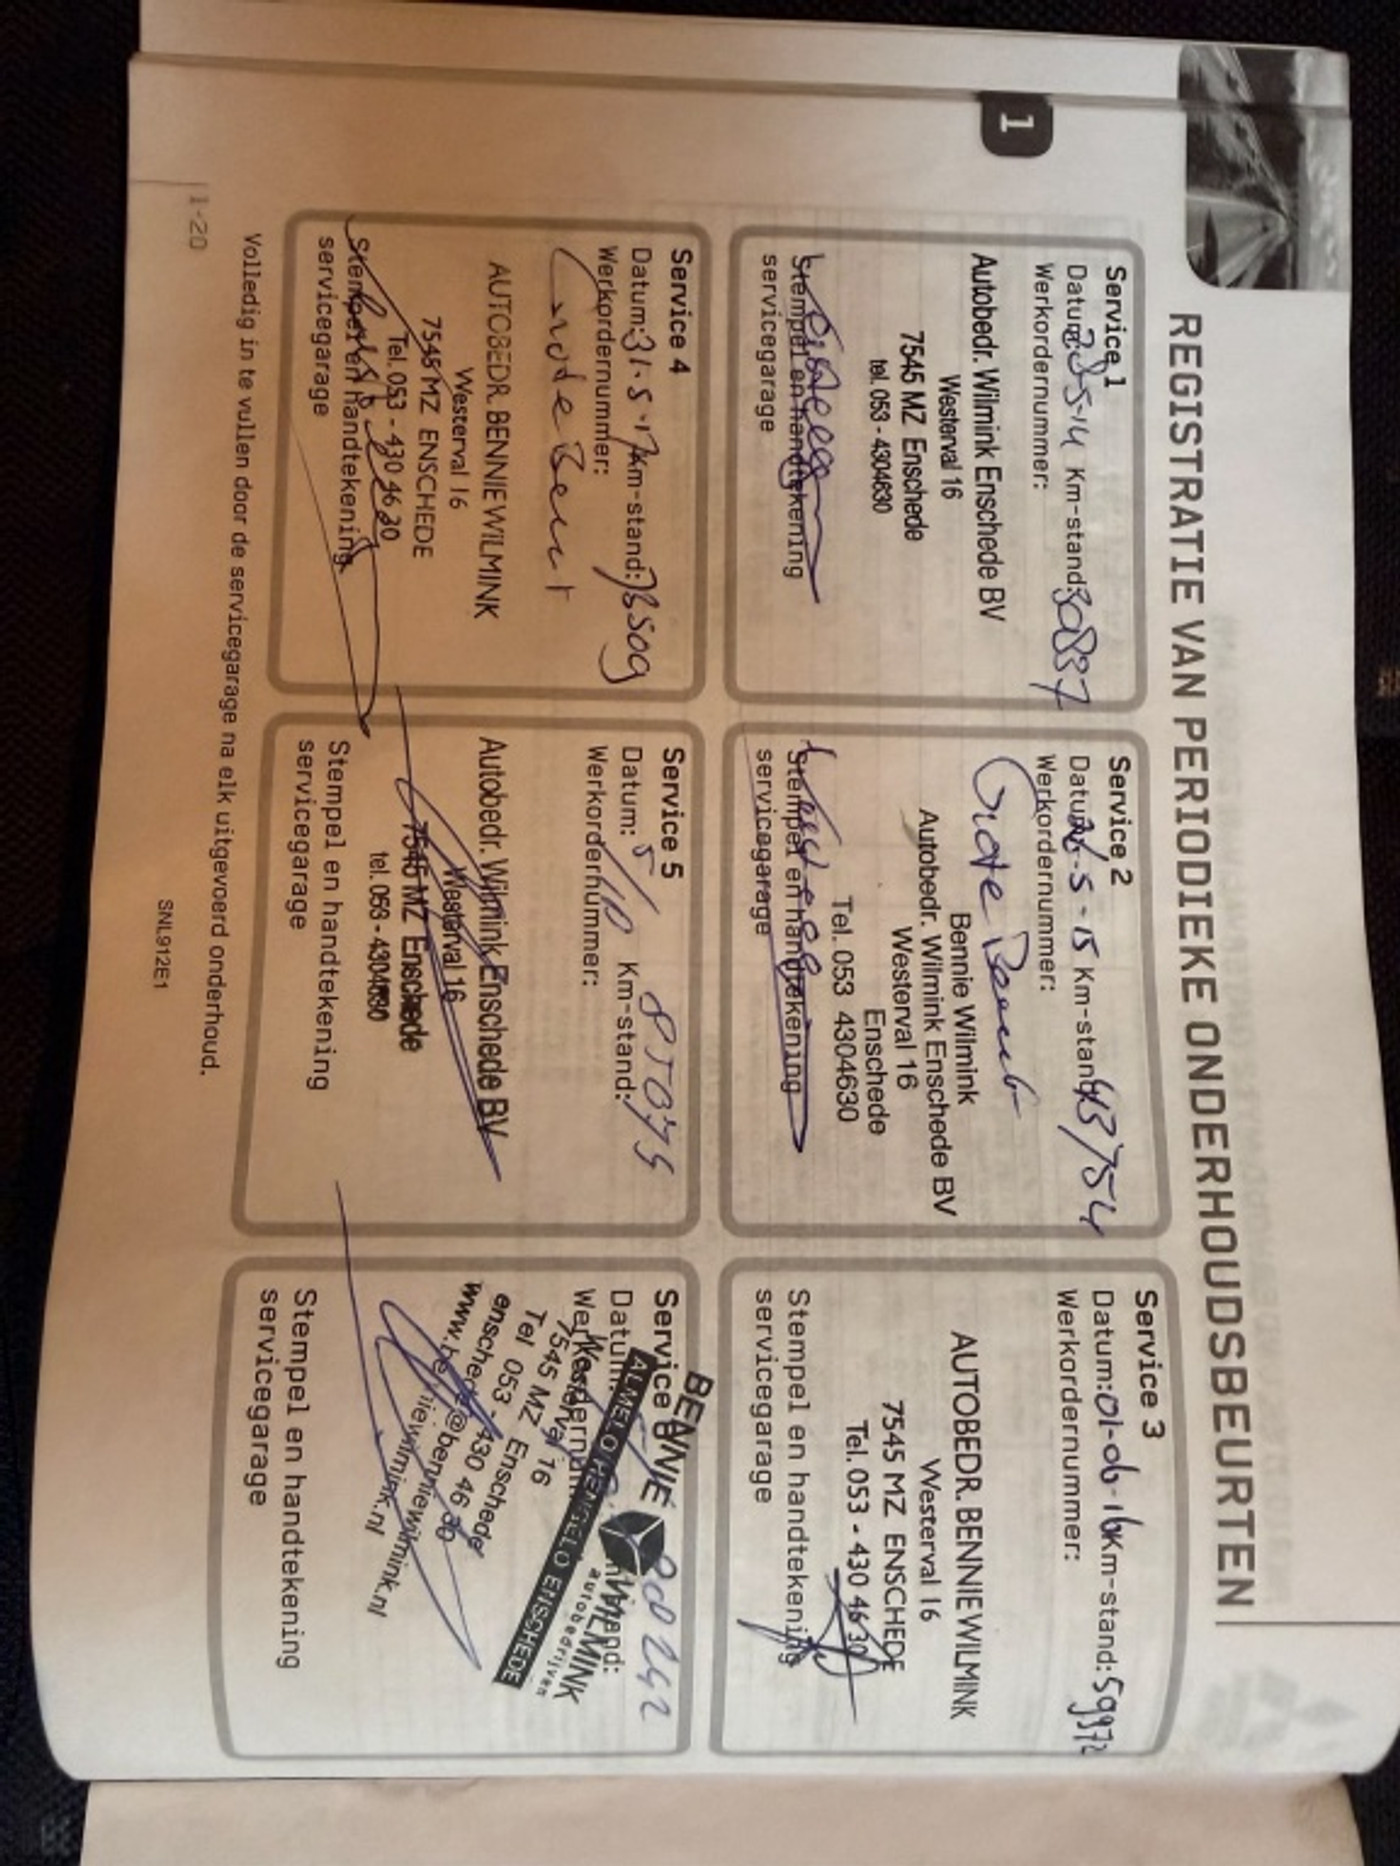 1
REGISTRATIE VAN PERIODIEKE ONDERHOUDSBEURTEN
Service 1
Datum: Km-stand: 30837
Werkordernummer:
Autobedr. Wilmink Enschede BV
Westerval 16
7545 MZ Enschede
tel. 053 - 4304630
Stempel en handtekening
servicegarage
Service 2
Datum: -5-15 Km-stand: 43754
Werkordernummer:
Grote Beurt
Bennie Wilmink
Autobedr. Wilmink Enschede BV
Westerval 16
Enschede
Tel. 053 4304630
Stempel en handtekening
servicegarage
Service 3
Datum: 01-06-16 Km-stand: 59972
Werkordernummer:
AUTOBEDR. BENNIE WILMINK
Westerval 16
7545 MZ ENSCHEDE
Tel. 053 - 430 46 30
Stempel en handtekening
servicegarage
Service 4
Datum: 31-5-17 Km-stand: 73509
Werkordernummer:
Grote Beurt
AUTOBEDR. BENNIE WILMINK
Westerval 16
7545 MZ ENSCHEDE
Tel. 053 - 430 46 30
Stempel en handtekening
servicegarage
Service 5
Datum: 5/10 Km-stand:
Werkordernummer:
Autobedr. Wilmink Enschede BV
Westerval 16
7545 MZ Enschede
tel. 053 - 4304630
Stempel en handtekening
servicegarage
Service 6
Datum: Km-stand:
Werkordernummer:
BENNIE WILMINK
autobedrijven
ALMELO HENGELO ENSCHEDE
Westerval 16
7545 MZ Enschede
Tel 053 - 430 46 30
enschede@benniewilmink.nl
www.benniewilmink.nl
Stempel en handtekening
servicegarage
Volledig in te vullen door de servicegarage na elk uitgevoerd onderhoud.
1-20
SNL912E1